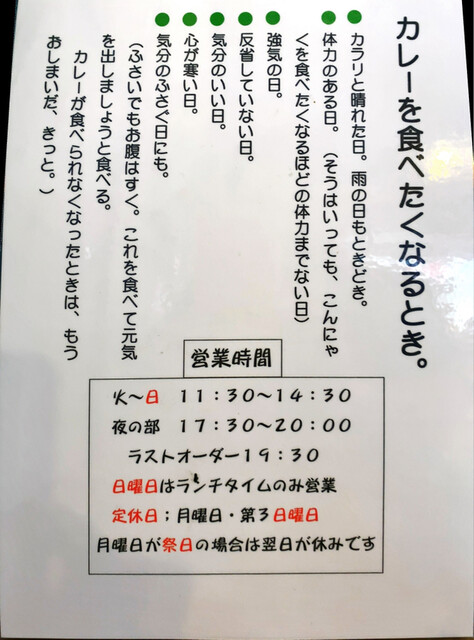 カレーを食べたくなるとき。
●カラリと晴れた日。雨の日もときどき。
●体力のある日。（そうはいっても、こんにゃ
くを食べたくなるほどの体力までない日）
●強気の日。
●反省していない日。
●気分のいい日。
●心が寒い日。
●気分のふさぐ日にも。
（ふさいでもお腹はすく。これを食べて元気
を出しましょうと食べる。
カレーが食べられなくなったときは、もう
おしまいだ、きっと。）
営業時間
火～日 11：30～14：30
夜の部 17：30～20：00
ラストオーダー19：30
日曜日はランチタイムのみ営業
定休日；月曜日・第3日曜日
月曜日が祭日の場合は翌日が休みです